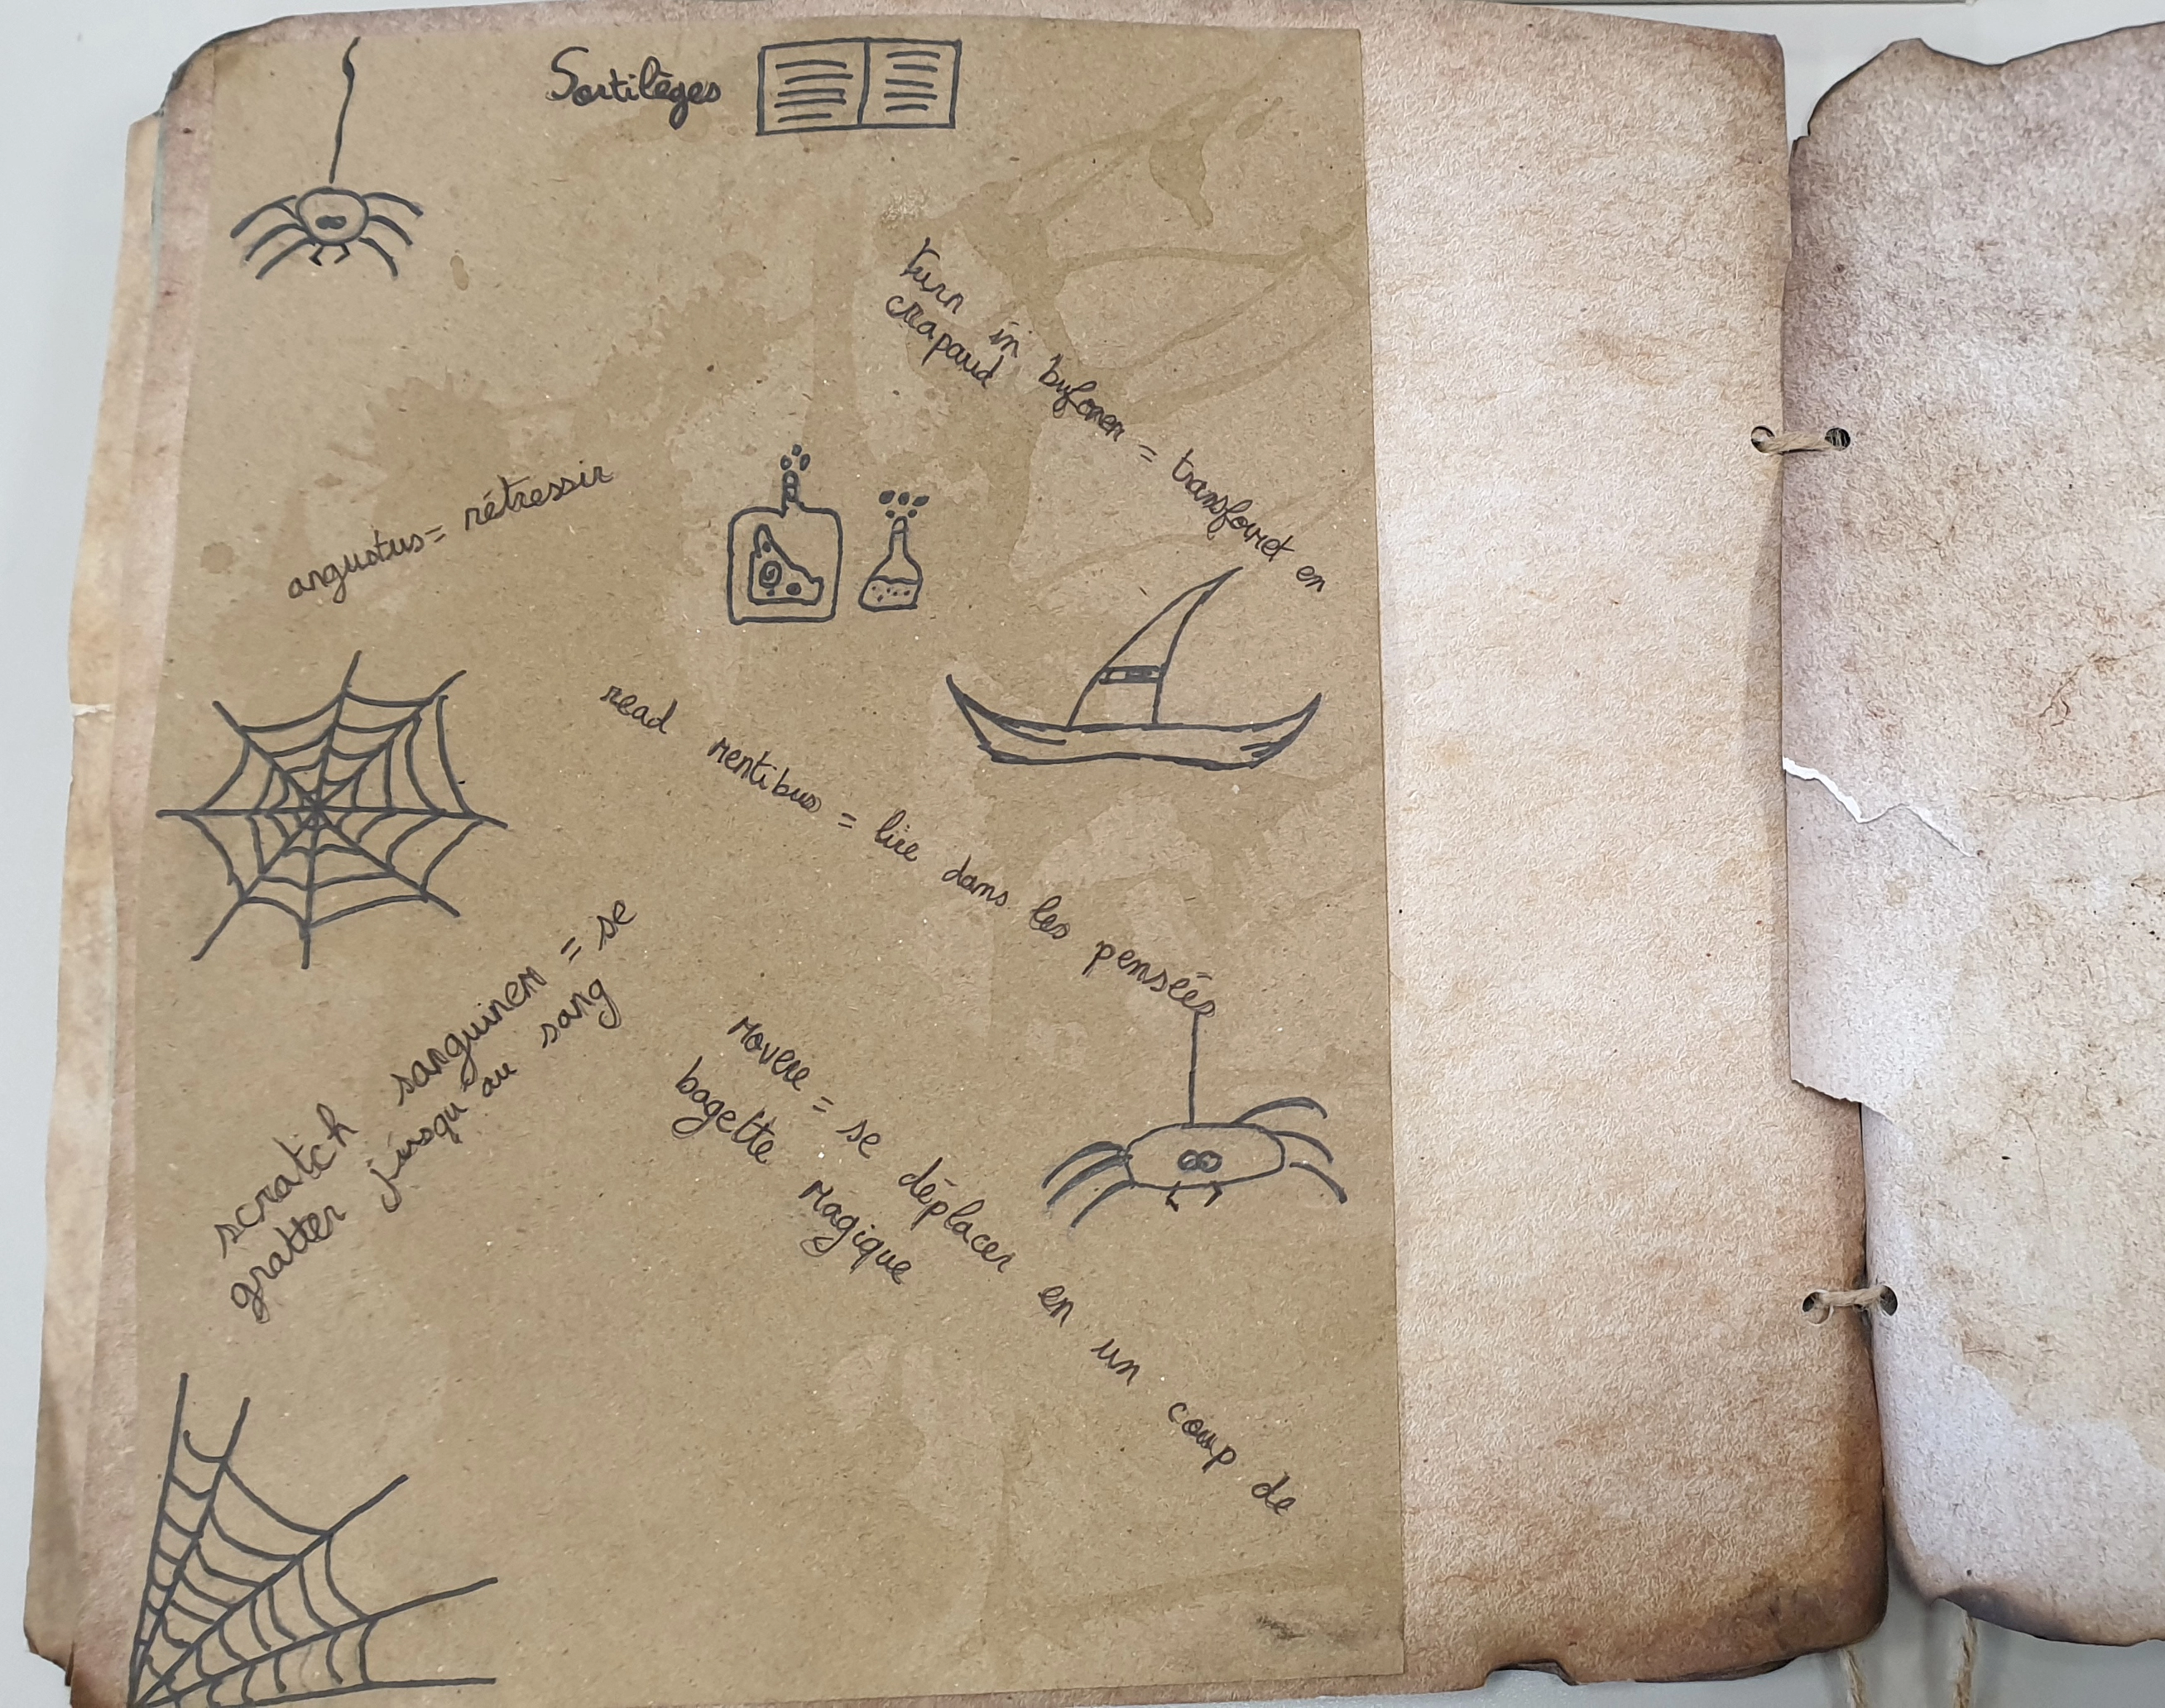 Sortilèges
turn in bufonem = transformet en
crapaud
angustus = rétressir
read mentibus = lire dans les pensées
scratch sanguinem = se
gratter jusqu'au sang
Movere = se déplacer en un coup de
bagette magique